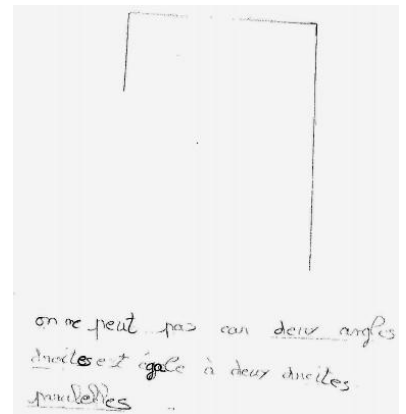 on ne peut pas car deux angles
droites est égale à deux droites
parallèles